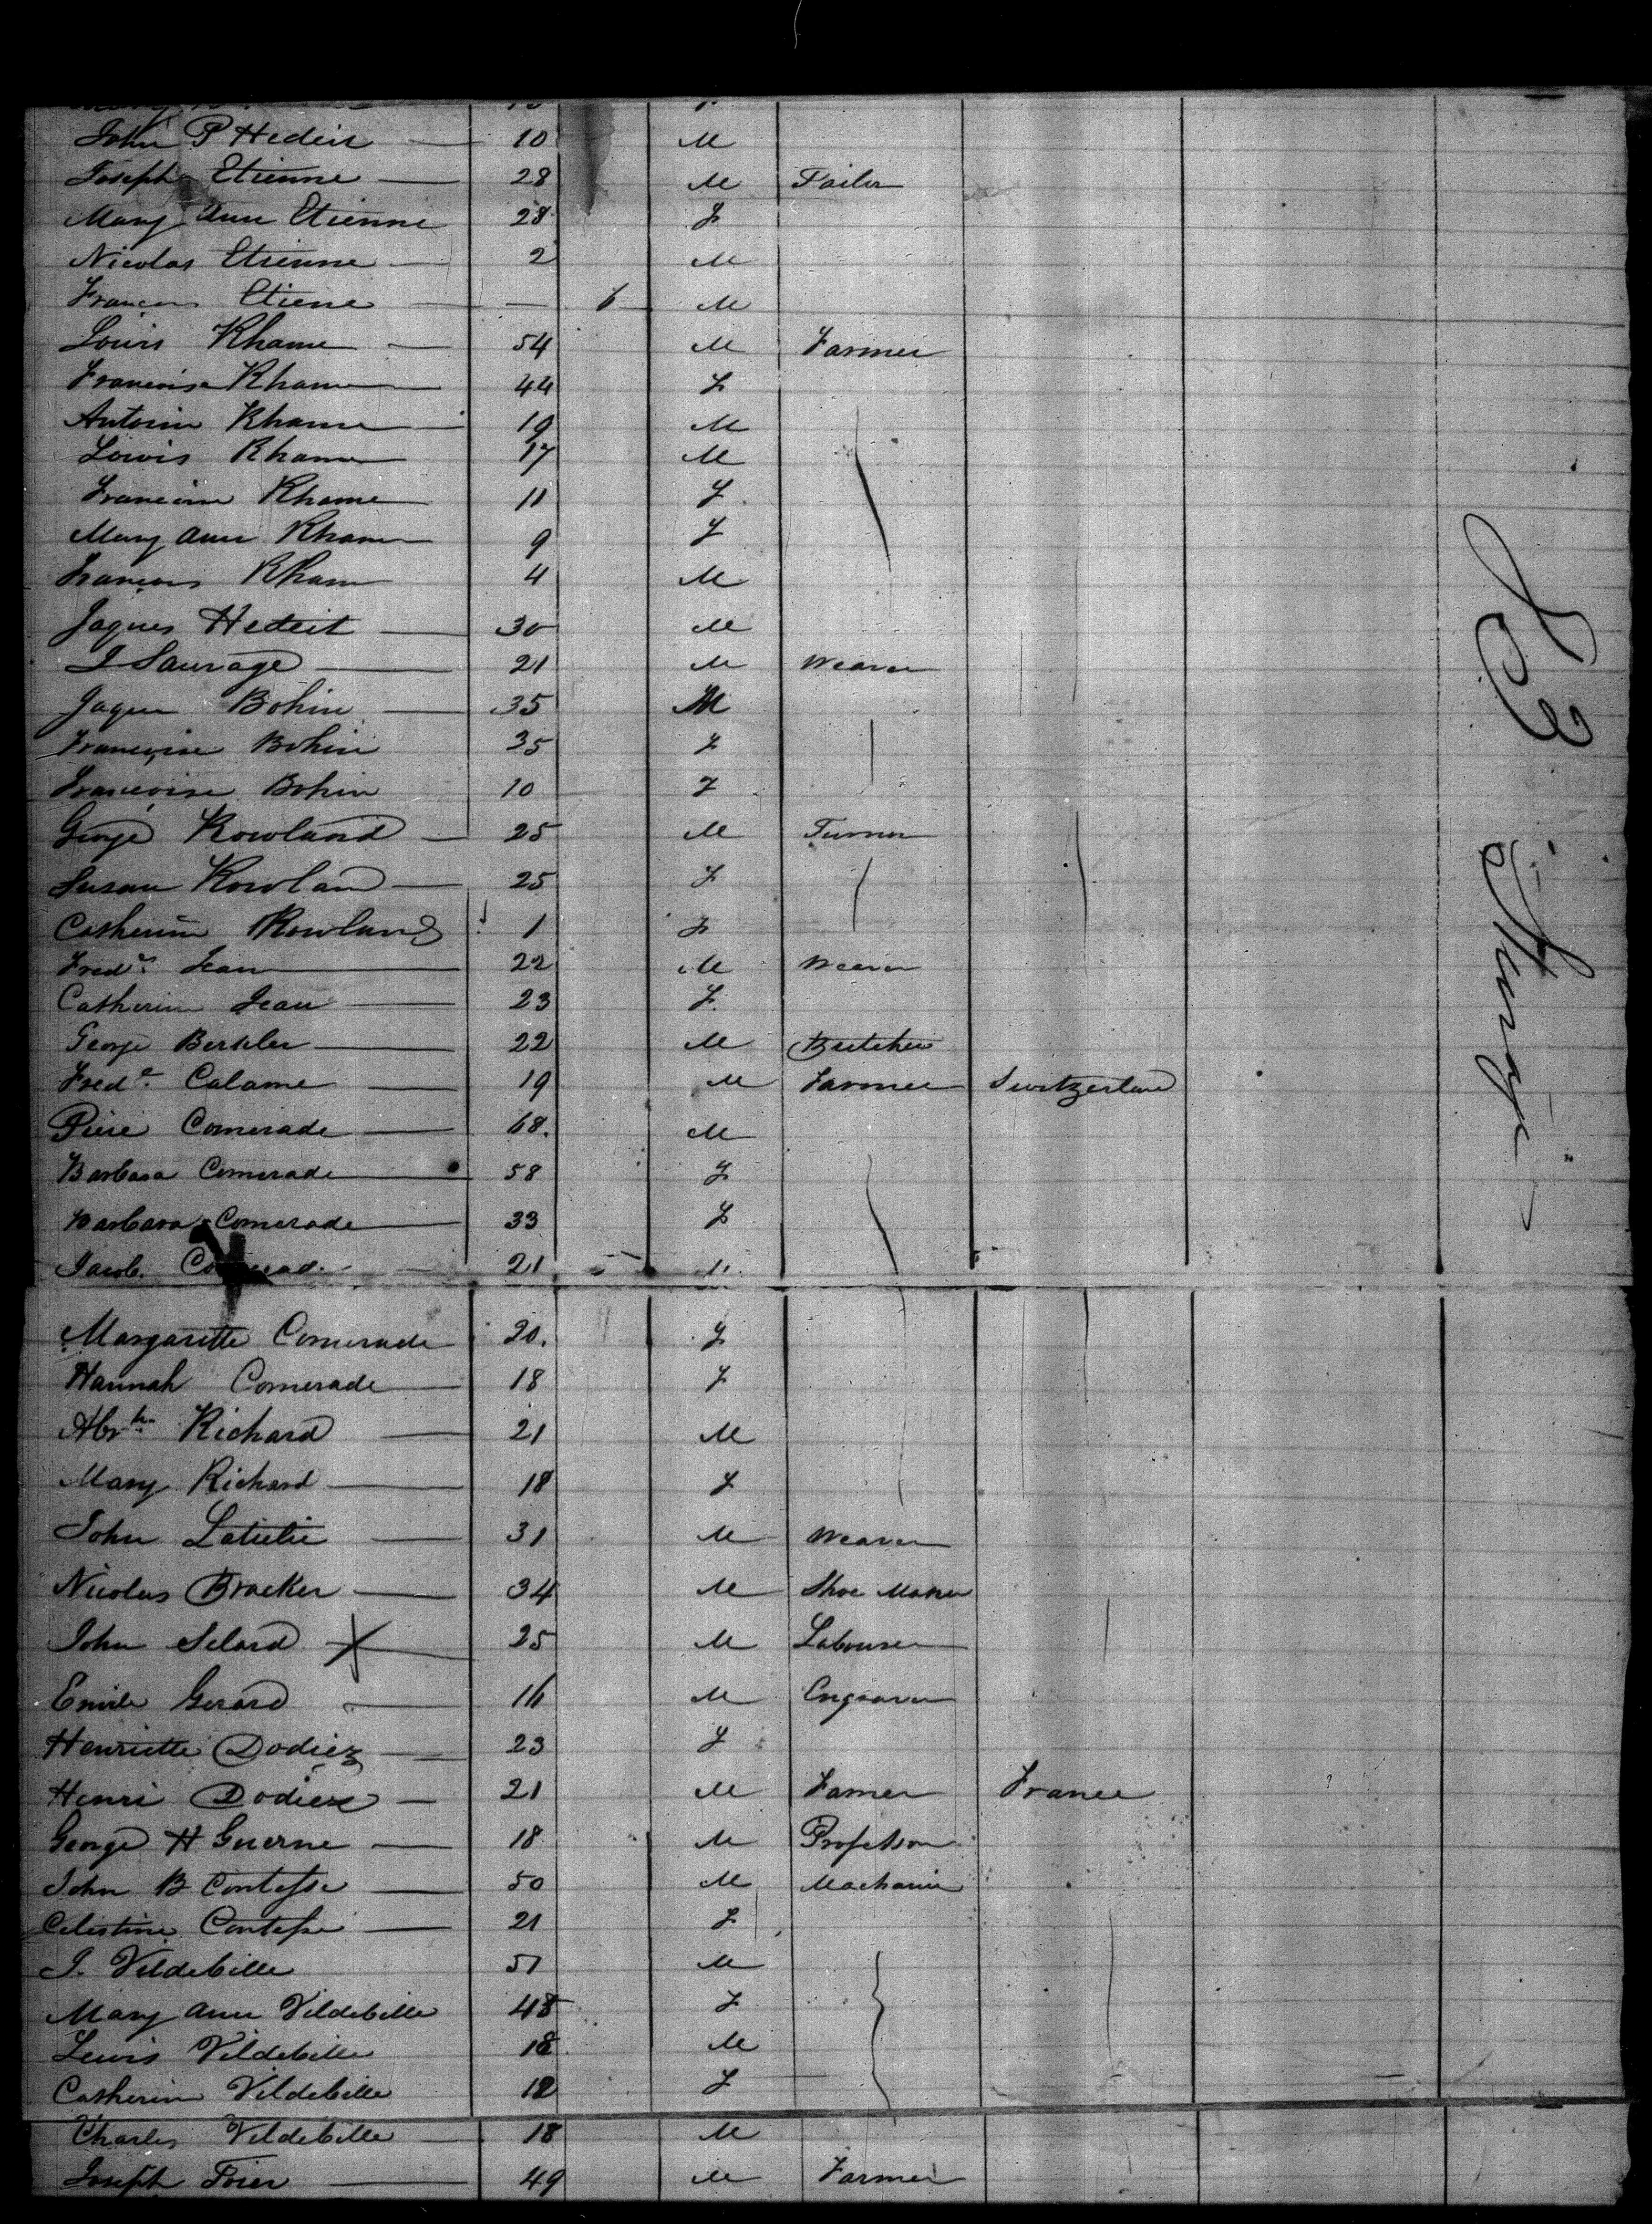 John P Hedeit 10 M
Joseph Etienne 28 M Tailor
Mary Ann Etienne 28 F
Nicolas Etienne 2 M
Francois Etiene — 6 M
Louis Khame 54 M Farmer
Francoise Khame 44 F
Antoin Khame 19 M
Louis Khame 17 M
Francoise Khame 11 F
Mary Ann Khame 9 F
Francois Kham 4 M
Jaques Hedeit 30 M
J Sauvage 21 M Weaver
Jaque Bohin 35 M
Francoise Bohin 35 F
Francoise Bohin 10 F
George Rowland 25 M Turner
Susan Rowland 25 F
Catherine Rowland 1 F
Fredk Jean 22 M Weaver
Catherine Jean 23 F
George Berkler 22 M Butcher
Fredc Calame 19 M Farmer Switzerland
Piere Comerade 68. M
Barbara Comerade 58 F
Barbara Comerade 33 F
Jacob Comerad 21 M
Margarette Comerade 20. F
Hannah Comerade 18 F
Abrm Richard 21 M
Mary Richard 18 F
John Latietie 31 M Weaver
Nicolas Bracker 34 M Shoe Maker
John Selard X 25 M Labourer
Emile Gerard 16 M Engraver
Henriette Dodiez 23 F
Henri Dodiez 21 M Farmer France
George H Guerne 18 M Professor
John B Contesse 50 M Machanic
Celestine Contesse 21 F
J. Vildebille 51 M
Mary Ann Vildebille 48 F
Lewis Vildebille 18 M
Catherine Vildebille 12 F
Charles Vildebille 18 M
Joseph Foier 49 M Farmer